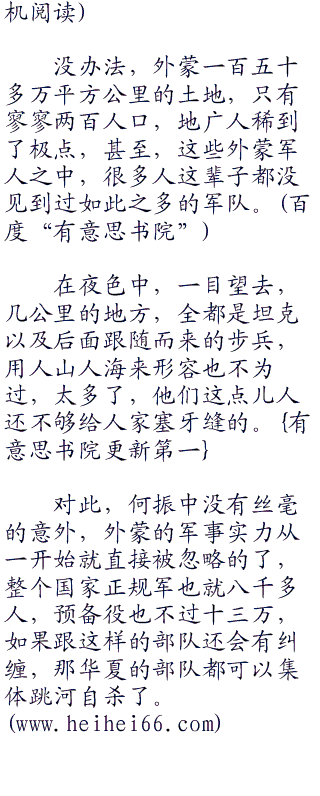 机阅读)
没办法，外蒙一百五十
多万平方公里的土地，只有
寥寥两百人口，地广人稀到
了极点，甚至，这些外蒙军
人之中，很多人这辈子都没
见到过如此之多的军队。(百
度“有意思书院”)
在夜色中，一目望去，
几公里的地方，全都是坦克
以及后面跟随而来的步兵，
用人山人海来形容也不为
过，太多了，他们这点儿人
还不够给人家塞牙缝的。{有
意思书院更新第一}
对此，何振中没有丝毫
的意外，外蒙的军事实力从
一开始就直接被忽略的了，
整个国家正规军也就八千多
人，预备役也不过十三万，
如果跟这样的部队还会有纠
缠，那华夏的部队都可以集
体跳河自杀了。
(www.heihei66.com)